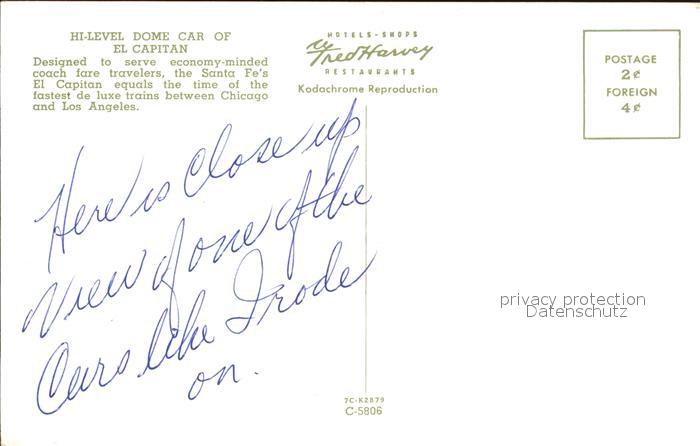 HI-LEVEL DOME CAR OF
EL CAPITAN
Designed to serve economy-minded
coach fare travelers, the Santa Fe's
El Capitan equals the time of the
fastest de luxe trains between Chicago
and Los Angeles.
HOTELS-SHOPS
by Fred Harvey
RESTAURANTS
Kodachrome Reproduction
POSTAGE
2¢
FOREIGN
4¢
Here is Close up
View of one of the
Cars like I rode
on.
privacy protection
Datenschutz
7C-K2879
C-5806